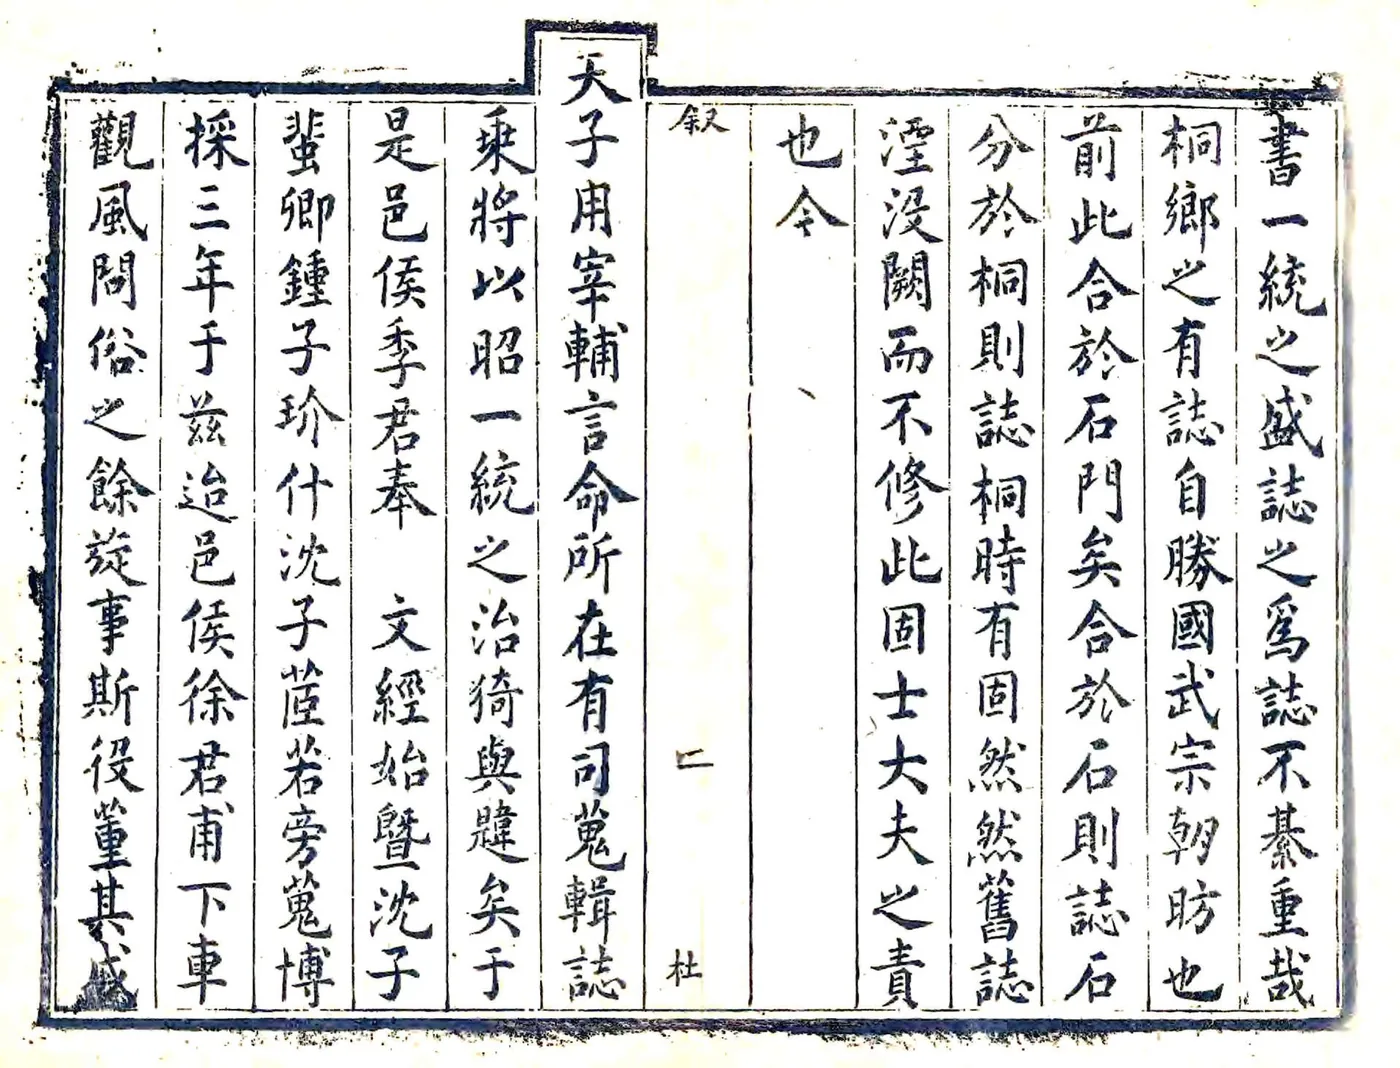 書一統之盛誌之爲誌不綦重哉
桐鄉之有誌自勝國武宗朝昉也
前此合於石門矣合於石則誌石
分於桐則誌桐時有固然然舊誌
湮没闕而不修此固士大夫之責
也今
叙
二
杜
天子用宰輔言命所在有司蒐輯誌
乘將以昭一統之治猗與韙矣于
是邑侯季君奉 文經始曁沈子
蜚卿鍾子玠什沈子茝若旁蒐博
採三年于兹迨邑侯徐君甫下車
觀風問俗之餘㫌事斯役董其成